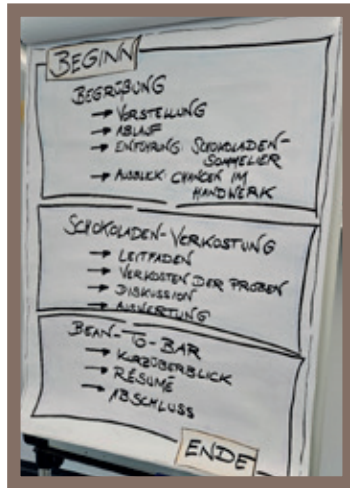 BEGINN
BEGRÜßUNG
→ VORSTELLUNG
→ ABLAUF
→ EINFÜHRUNG: SCHOKOLADEN-
SOMMELIER
→ AUSBLICK CHANCEN IM
HANDWERK
SCHOKOLADEN-VERKOSTUNG
→ LEITFADEN
→ VERKOSTEN DER PROBEN
→ DISKUSSION
→ AUSWERTUNG
BEAN-TO-BAR
→ KURZÜBERBLICK
→ RÉSUMÉ
→ ABSCHLUSS
ENDE